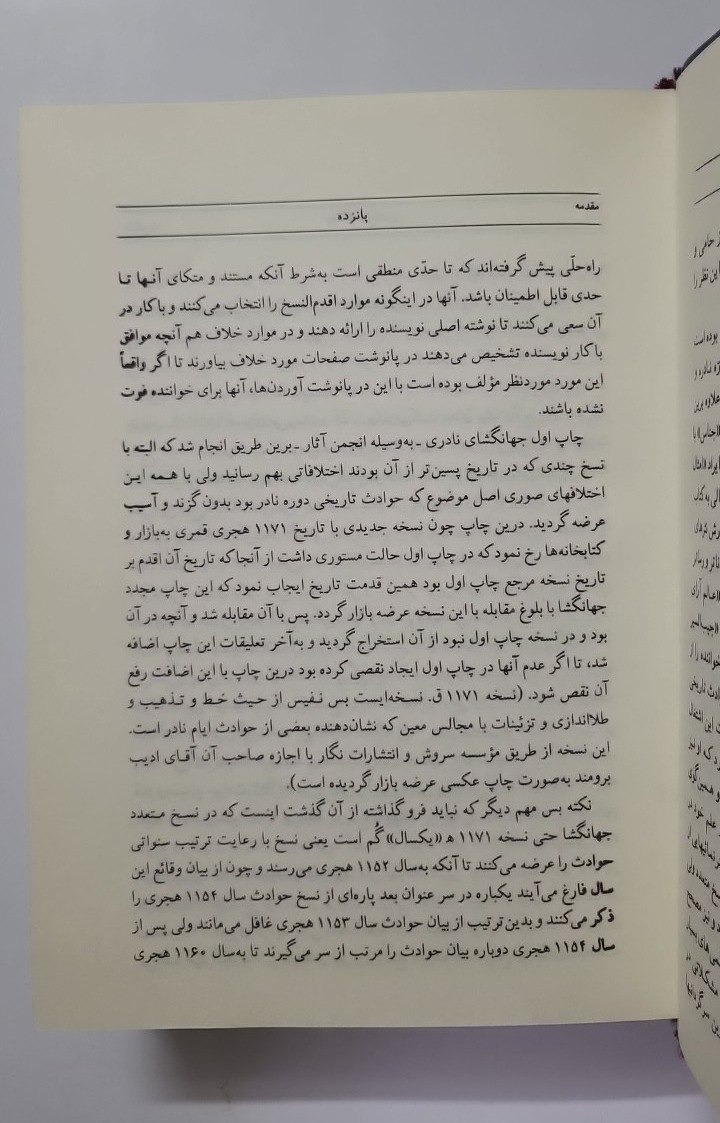 مقدمه
پانزده
راه‌حلّی پیش گرفته‌اند که تا حدّی منطقی است به‌شرط آنکه مستند و متکای آنها تا
حدی قابل اطمینان باشد. آنها در اینگونه موارد اقدم‌النسخ را انتخاب می‌کنند و باکار در
آن سعی می‌کنند تا نوشته اصلی نویسنده را ارائه دهند و در موارد خلاف هم آنچه موافق
باکار نویسنده تشخیص می‌دهند در پانوشت صفحات مورد خلاف بیاورند تا اگر واقعاً
این مورد موردنظر مؤلف بوده است با این در پانوشت آوردن‌ها، آنها برای خواننده فوت
نشده باشند.
چاپ اول جهانگشای نادری ـ به‌وسیله انجمن آثار ـ برین طریق انجام شد که البته با
نسخ چندی که در تاریخ پسین‌تر از آن بودند اختلافاتی بهم رسانید ولی با همه این
اختلافهای صوری اصل موضوع که حوادث تاریخی دوره نادر بود بدون گزند و آسیب
عرضه گردید. درین چاپ چون نسخه جدیدی با تاریخ ۱۱۷۱ هجری قمری به‌بازار و
کتابخانه‌ها رخ نمود که در چاپ اول حالت مستوری داشت از آنجا که تاریخ آن اقدم بر
تاریخ نسخه مرجع چاپ اول بود همین قدمت تاریخ ایجاب نمود که این چاپ مجدد
جهانگشا با بلوغ مقابله با این نسخه عرضه بازار گردد. پس با آن مقابله شد و آنچه در آن
بود و در نسخه چاپ اول نبود از آن استخراج گردید و به‌آخر تعلیقات این چاپ اضافه
شد، تا اگر عدم آنها در چاپ اول ایجاد نقصی کرده بود درین چاپ با این اضافت رفع
آن نقص شود. (نسخه ۱۱۷۱ ق. نسخه‌ایست بس نفیس از حیث خط و تذهیب و
طلااندازی و تزئینات با مجالس معین که نشان‌دهنده بعضی از حوادث ایام نادر است.
این نسخه از طریق مؤسسه سروش و انتشارات نگار با اجازه صاحب آن آقای ادیب
برومند به‌صورت چاپ عکسی عرضه بازار گردیده است).
نکته بس مهم دیگر که نباید فرو گذاشته از آن گذشت اینست که در نسخ متعدد
جهانگشا حتی نسخه ۱۱۷۱ ه‍ «یکسال» گُم است یعنی نسخ با رعایت ترتیب سنواتی
حوادث را عرضه می‌کنند تا آنکه به‌سال ۱۱۵۲ هجری می‌رسند و چون از بیان وقائع این
سال فارغ می‌آیند یکباره در سر عنوان بعد پاره‌ای از نسخ حوادث سال ۱۱۵۴ هجری را
ذکر می‌کنند و بدین‌ترتیب از بیان حوادث سال ۱۱۵۳ هجری غافل می‌مانند ولی پس از
سال ۱۱۵۴ هجری دوباره بیان حوادث را مرتب از سر می‌گیرند تا به‌سال ۱۱۶۰ هجری